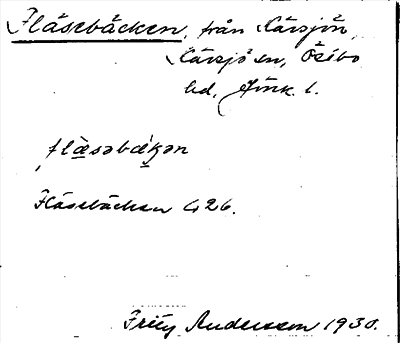 Fläsebäcken, från Kävsjön,
Kävsjö sn, Östbo
hd, Jönk. l.
flæsəbækən
Fläsebäcken G 26.
Fritz Andersson 1930.